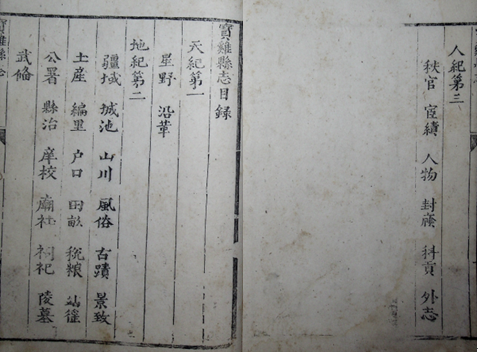 人紀第三
秩官 宦績 人物 封廕 科貢 外志
寶雞縣志目錄
天紀第一
星野 沿革
地紀第二
疆域 城池 山川 風俗 古蹟 景致
土産 編里 户口 田畝 稅粮 站徭
公署 縣治 庠校 廟社 祠祀 陵墓
武備